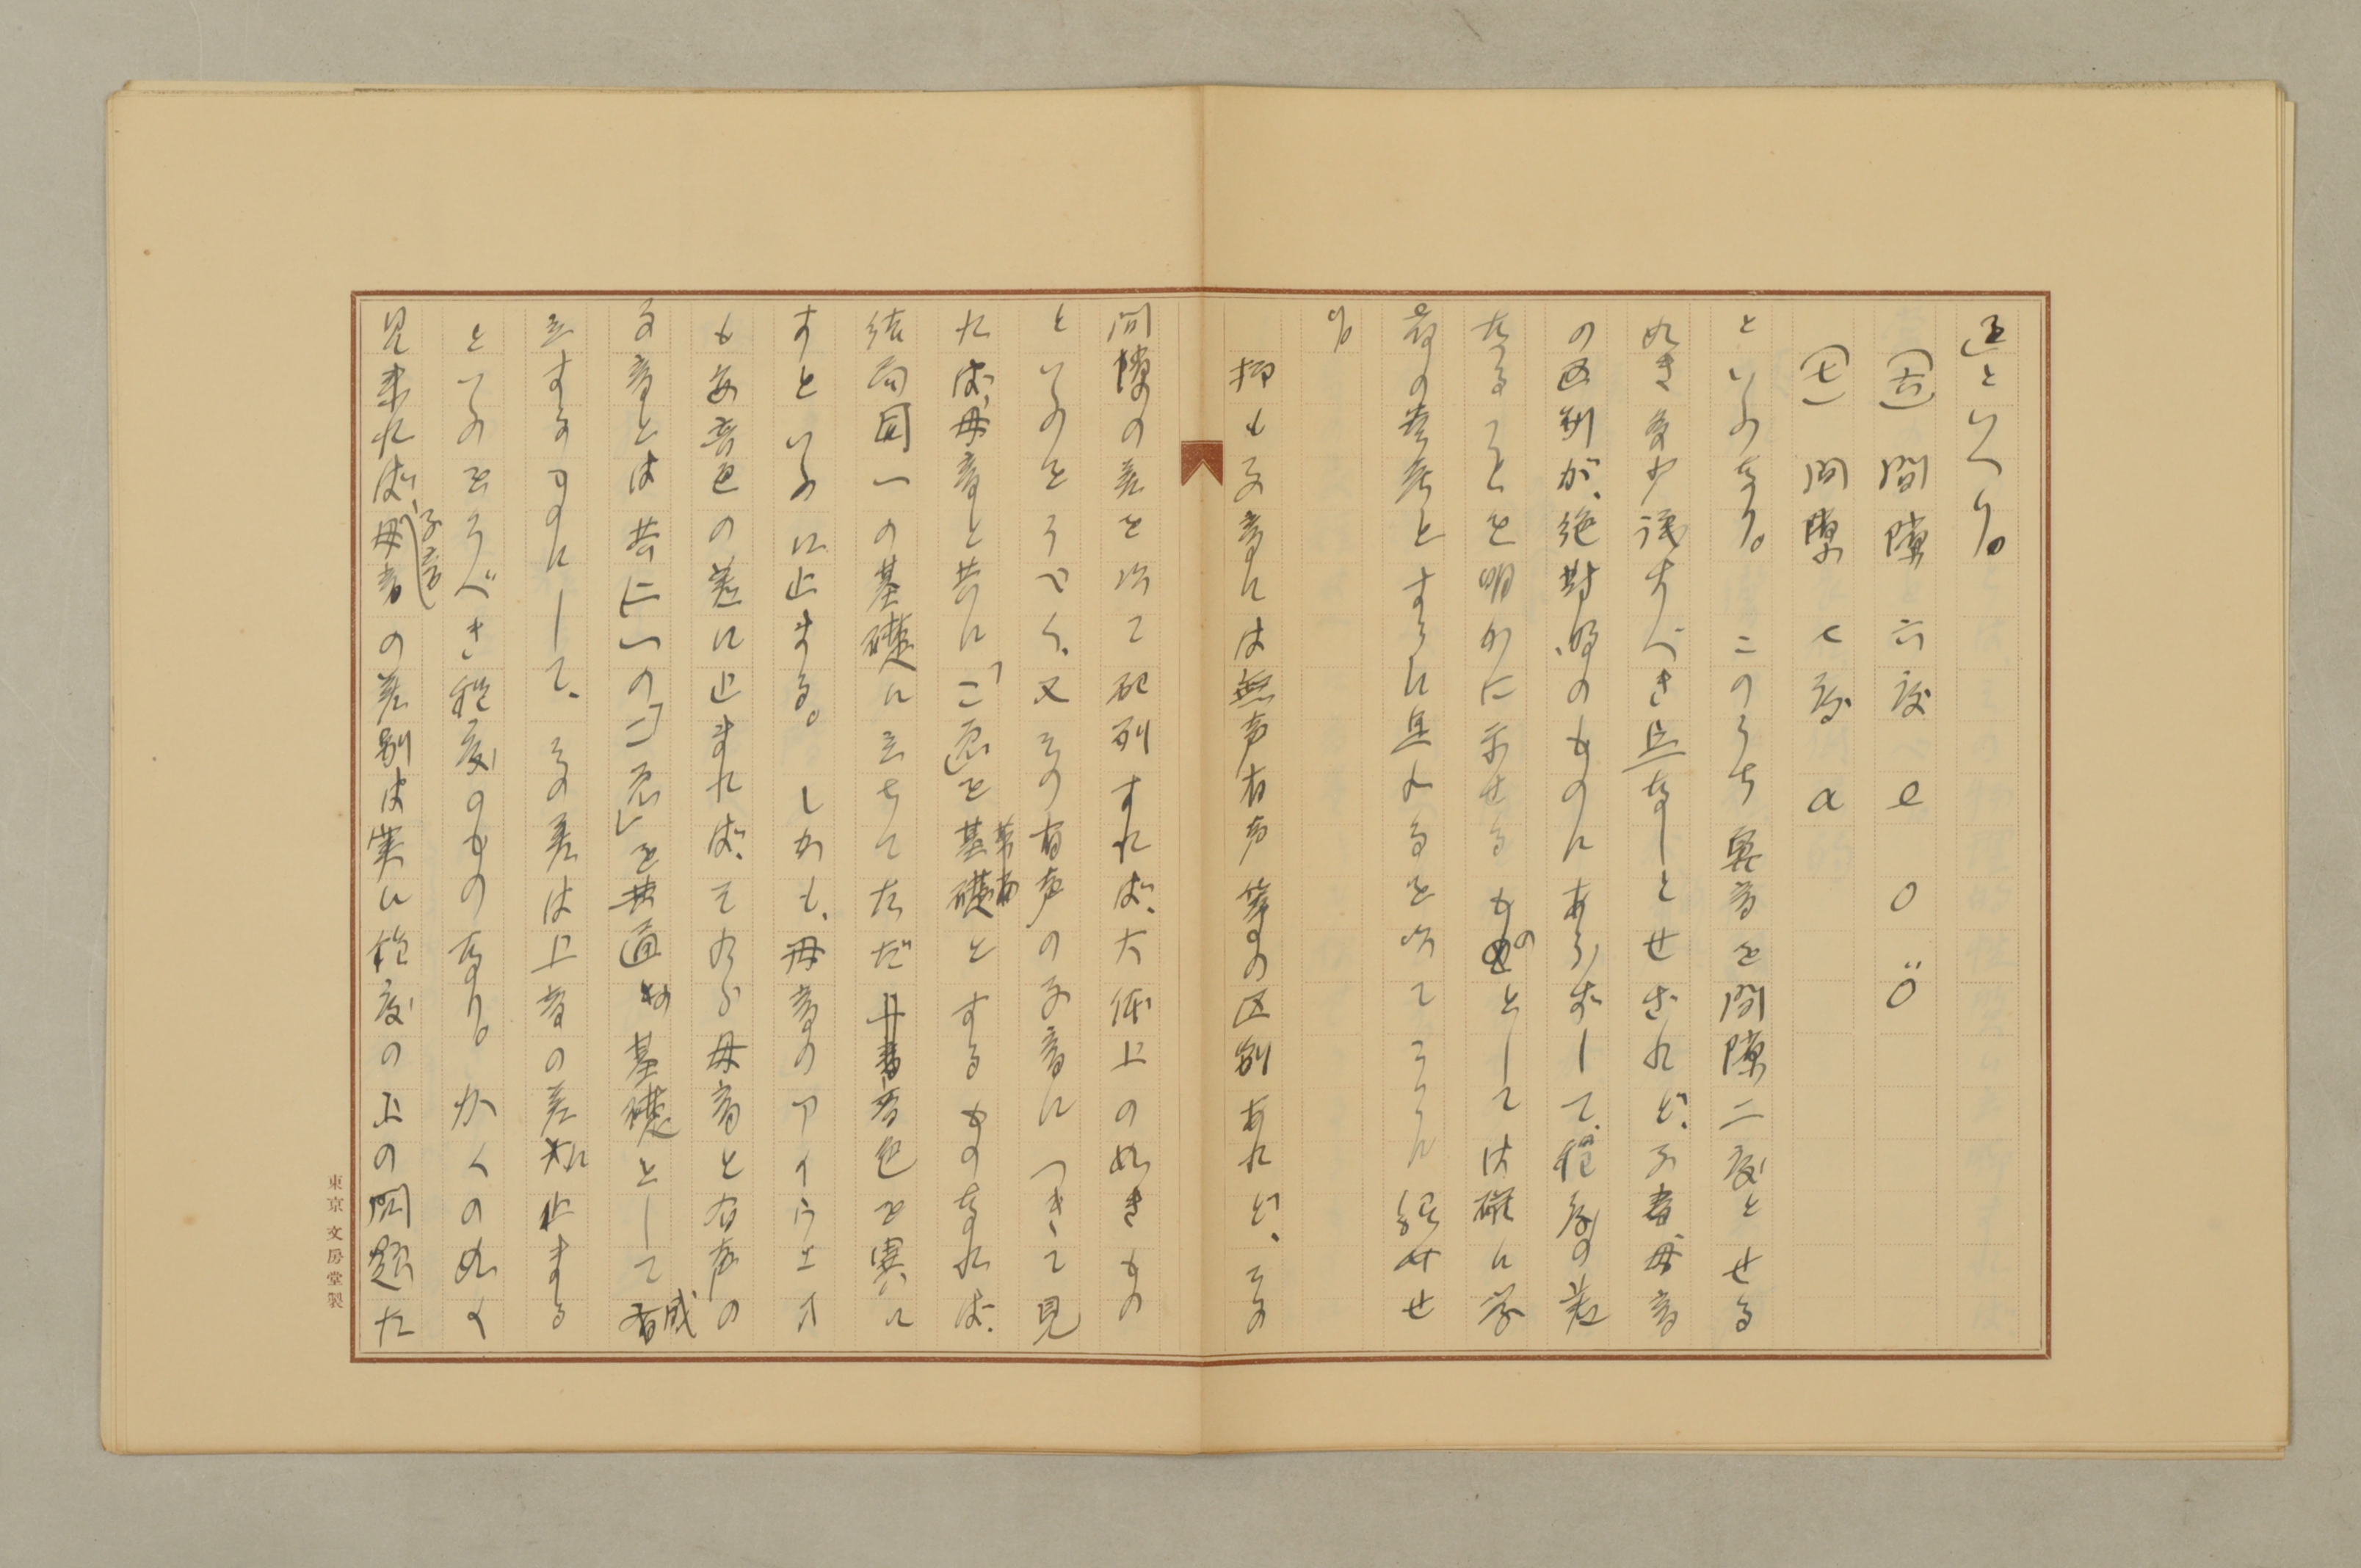 正といへり。
(六) 間隙六度 e o ö
(七) 間隙七度 a
といふなり。このうち鼻音を間隙二度とせる
如きなほ議すべき点なしとせざれど、子音母音
の区別が、絶対的のものにあらずして、程度の差
たることを明かに示せるものとしては確に学
界の巻委とするに足れるを以てこゝに紹せ
り。
抑も子音には無声有声等の区別あれど、その
間隙の差を以て配列すれば、大体上の如きもの
といふをうべく、又その有声の子音につきて見
れば、母音と共に「こゑ」を基礎とするものなれば、
結局同一の基礎に立ちてただ音色を異に
すといふに止まる。しかも、母音のアイウエオ
も亦音色の差に止まれば、それら母音と有声の
子音とは共に一の「こゑ」を共通の基礎として成
立するものにして、その差は上音の差に止まる
といふをうべき程度のものなり。かくの如く
見来れば、子音母音の差別は実に程度の上の問題た
東京 文房堂製